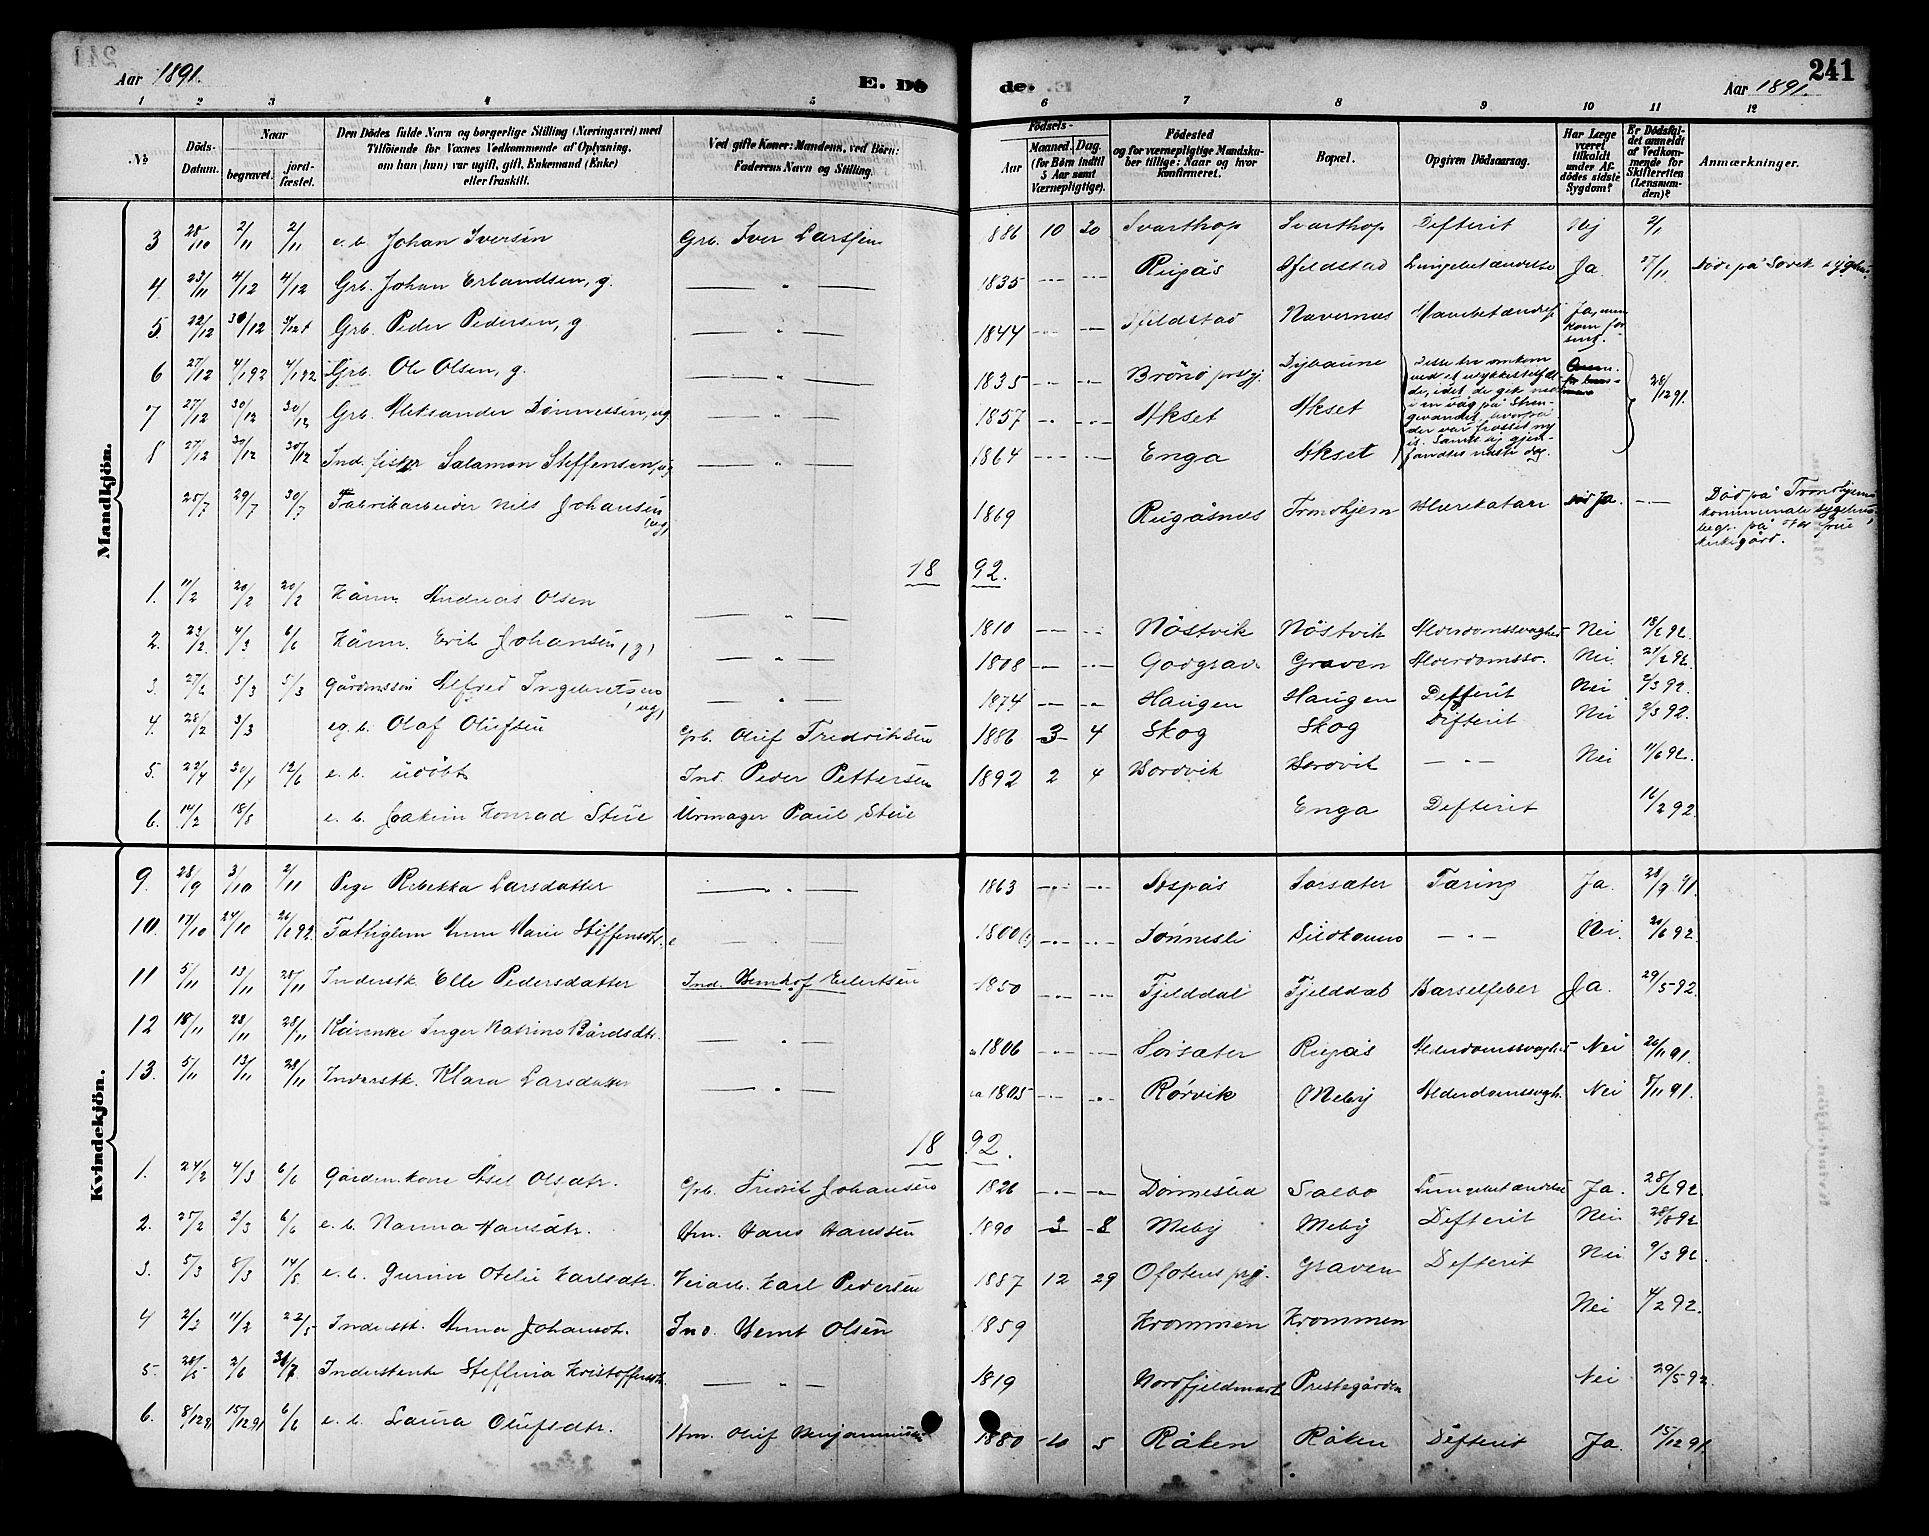 Aar 1891.
E. Dö
de.
241
Aar 1891.
1 2 3 4 5 6 7 8 9 10 11 12
No
Döds-
Datum.
Naar
begravet.
jord-
fæstet.
Den Dödes fulde Navn og borgerlige Stilling (Næringsvei) med
Tilföiende for Voxnes Vedkommende af Oplysning,
om han (hun) var ugift, gift, Enkemand (Enke)
eller fraskilt.
Ved gifte Koner: Mandens, ved Börn:
Faderens Navn og Stilling.
Födsels-
Aar
Maaned. Dag.
(for Börn indtil
5 Aar samt
Værnepligtige).
Födested
og for værnepligtige Mandska-
ber tillige: Naar og hvor
konfirmeret.
Bopæl.
Opgiven Dödsaarsag.
Har Læge
været
tilkaldt
under Af-
dödes sidste
Sygdom?
Er Dödsfal-
det anmeldt
af Vedkom-
mende for
Skifteretten
(Lensman-
den)?
Anmærkninger.
Mandkjön.
3 28/10 2/11 2/11 e. b. Johan Iversen Grb. Iver Larssen 886 10 30 Svarthop Svarthop Difterit Nej 2/1
4. 23/11 4/12 4/12 Grb. Johan Erlandsen, g. 1835 Ripås Lungebetændelse Ja. 27/11 Död på
5. 22/12 30/12 Grb. Peder Pedersen, g 1844 Navernes Mavebetændelse Ja, men kom for sent.
6 27/12 4/1 92 4/1 92 Grb. Ole Olsen, g. 1835 Brönö prstgj. Dybaune
7. 27/12 30/12 30/12 Grb. Aleksander Tönnessen, ug 1857 Akset Akset
8 27/12 30/12 30/12 Ind. fisker Salamon Steffensen, ug 1864 Enga Akset
Disse tre omkom
ved et ulykkestilfæl-
de, idet de gik ned
i en våg på
hvorpå
der var frosset ny
is.
fandtes næste dag.
28/12 91.
25/7 29/7 30/7 Fabrikarbeider Nils Johansen (ug) 1869 Ripåsnes Trondhjem Blærekatarr Ja.
Död på Trondhjems
kommunale sygehus
begr. på Vor frue
kirkegård.
1892.
1. 11/2 20/2 20/2 Kårm. Andreas Olsen 1810 Nöstvik Nöstvik Alderdomssvaghed Nei 18/6 92.
2. 23/2 4/3 6/6 Kårm. Erik Johansen, (g) 1808 Graven Alderdomssv. Nei 21/2 92.
3. 27/2 5/3 5/3 Gårdmssön Alfred Ingebretsen (ug) 1874 Haugen Haugen Difterit Nei 2/3 92.
4. 28/2 3/3 eg. b. Olaf Olufsen Grb. Oluf Fredriksen 1886 3 4 Skog Skog Difterit Nei 2/3 92.
5. 22/4 30/4 12/6 e. b. udöbt Ind. Peder Pettersen 1892 2 4 Bordvik Bordvik Nei 11/6 92.
6. 14/2 18/8 e. b. Joakim Konrad Stue Urmager Paul Stue Enga Difterit 16/2 92.
Kvindekjön.
9. 28/9 3/10 2/11 Pige Rebekka Larsdatter 1863 Aspås Sörsæter Tæring Ja. 28/9 91.
10. 17/10 24/10 26/6 92. Fattiglem Anna Marie Steffensdtr. 1800 Tönnesli Nei. 20/6 92.
11 5/11 13/11 28/11 Inderstk. Elle Pedersdatter Ind. Bernhof Eilertsen 1850 Fjelddal Fjelddal Barselfeber Ja. 29/5 92.
12 18/11 28/11 28/11 Kårenke Inger Katrine Bårdsdtr. 1806 Sörsæter Ripås Alderdomssvaghed Nei 26/11 91.
13. 5/11 13/11 28/11 Inderstk. Klara Larsdatter ca 1805 Rörvik Meby Alderdomssvagh. Nei 8/11 91.
1892.
1. 24/2 4/3 6/6 Gårdm.kone Olsdtr. Grb. Fredrik Johansen 1826 Salbo Lungebetændelse Ja. 28/2 92.
2. 25/2 2/3 6/6 e. b. Nanna Hansdtr. Hans Hanssen 1890 3 8 Meby Meby Difterit Nei 28/2 92
3. 5/3 8/3 14/5 e. b. Gurine Otelie Karlsdtr. Veiarb. Karl Pedersen 1887 12 29 Ofotens prgj. Graven Difterit Nei 9/3 92.
4 2/2 11/2 22/5 Inderstk. Anna Johansdtr. Ind. Bernt Olsen 1859 Krommen Krommen Nei 4/2 92.
5. 28/5 2/6 31/7 Inderstenke Steffina Kristoffersdtr. 1819 Nordfjeldmark Prestegården Nei 29/5 92.
6. 8/12 91 15/12 91 6/6 e. b. Laura Olufsdtr. Hm. Oluf Benjaminsen 1880 10 5 Råken Råken Difterit Ja. 15/12 91.